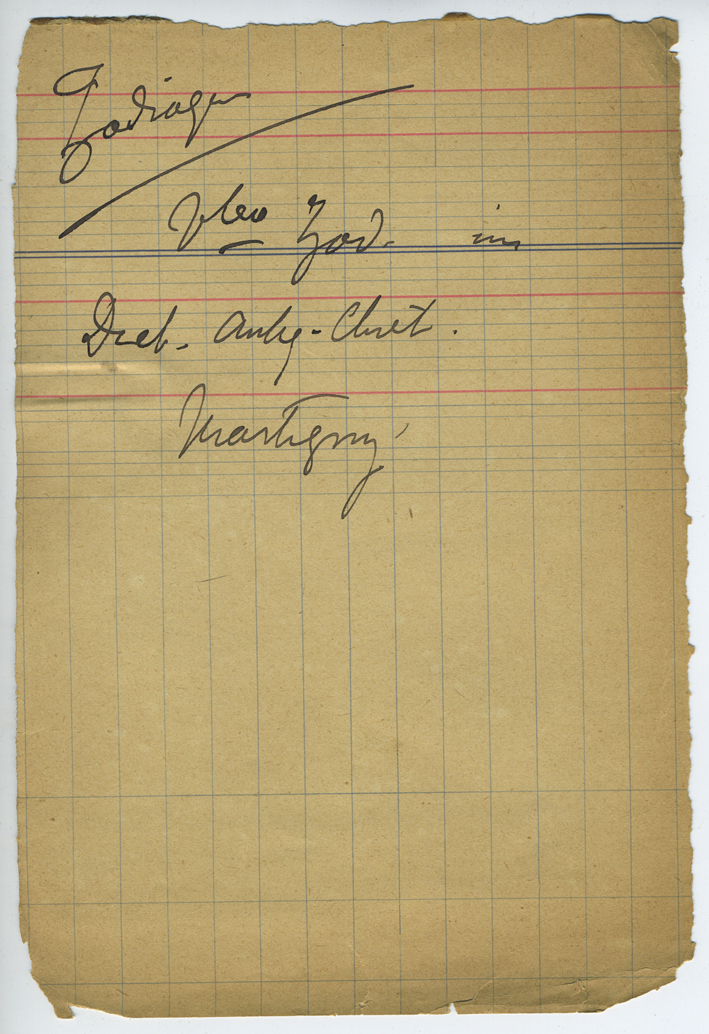 Zodiaque
Video Zod. in
Dict. Antiq. Chrét.
Martigny